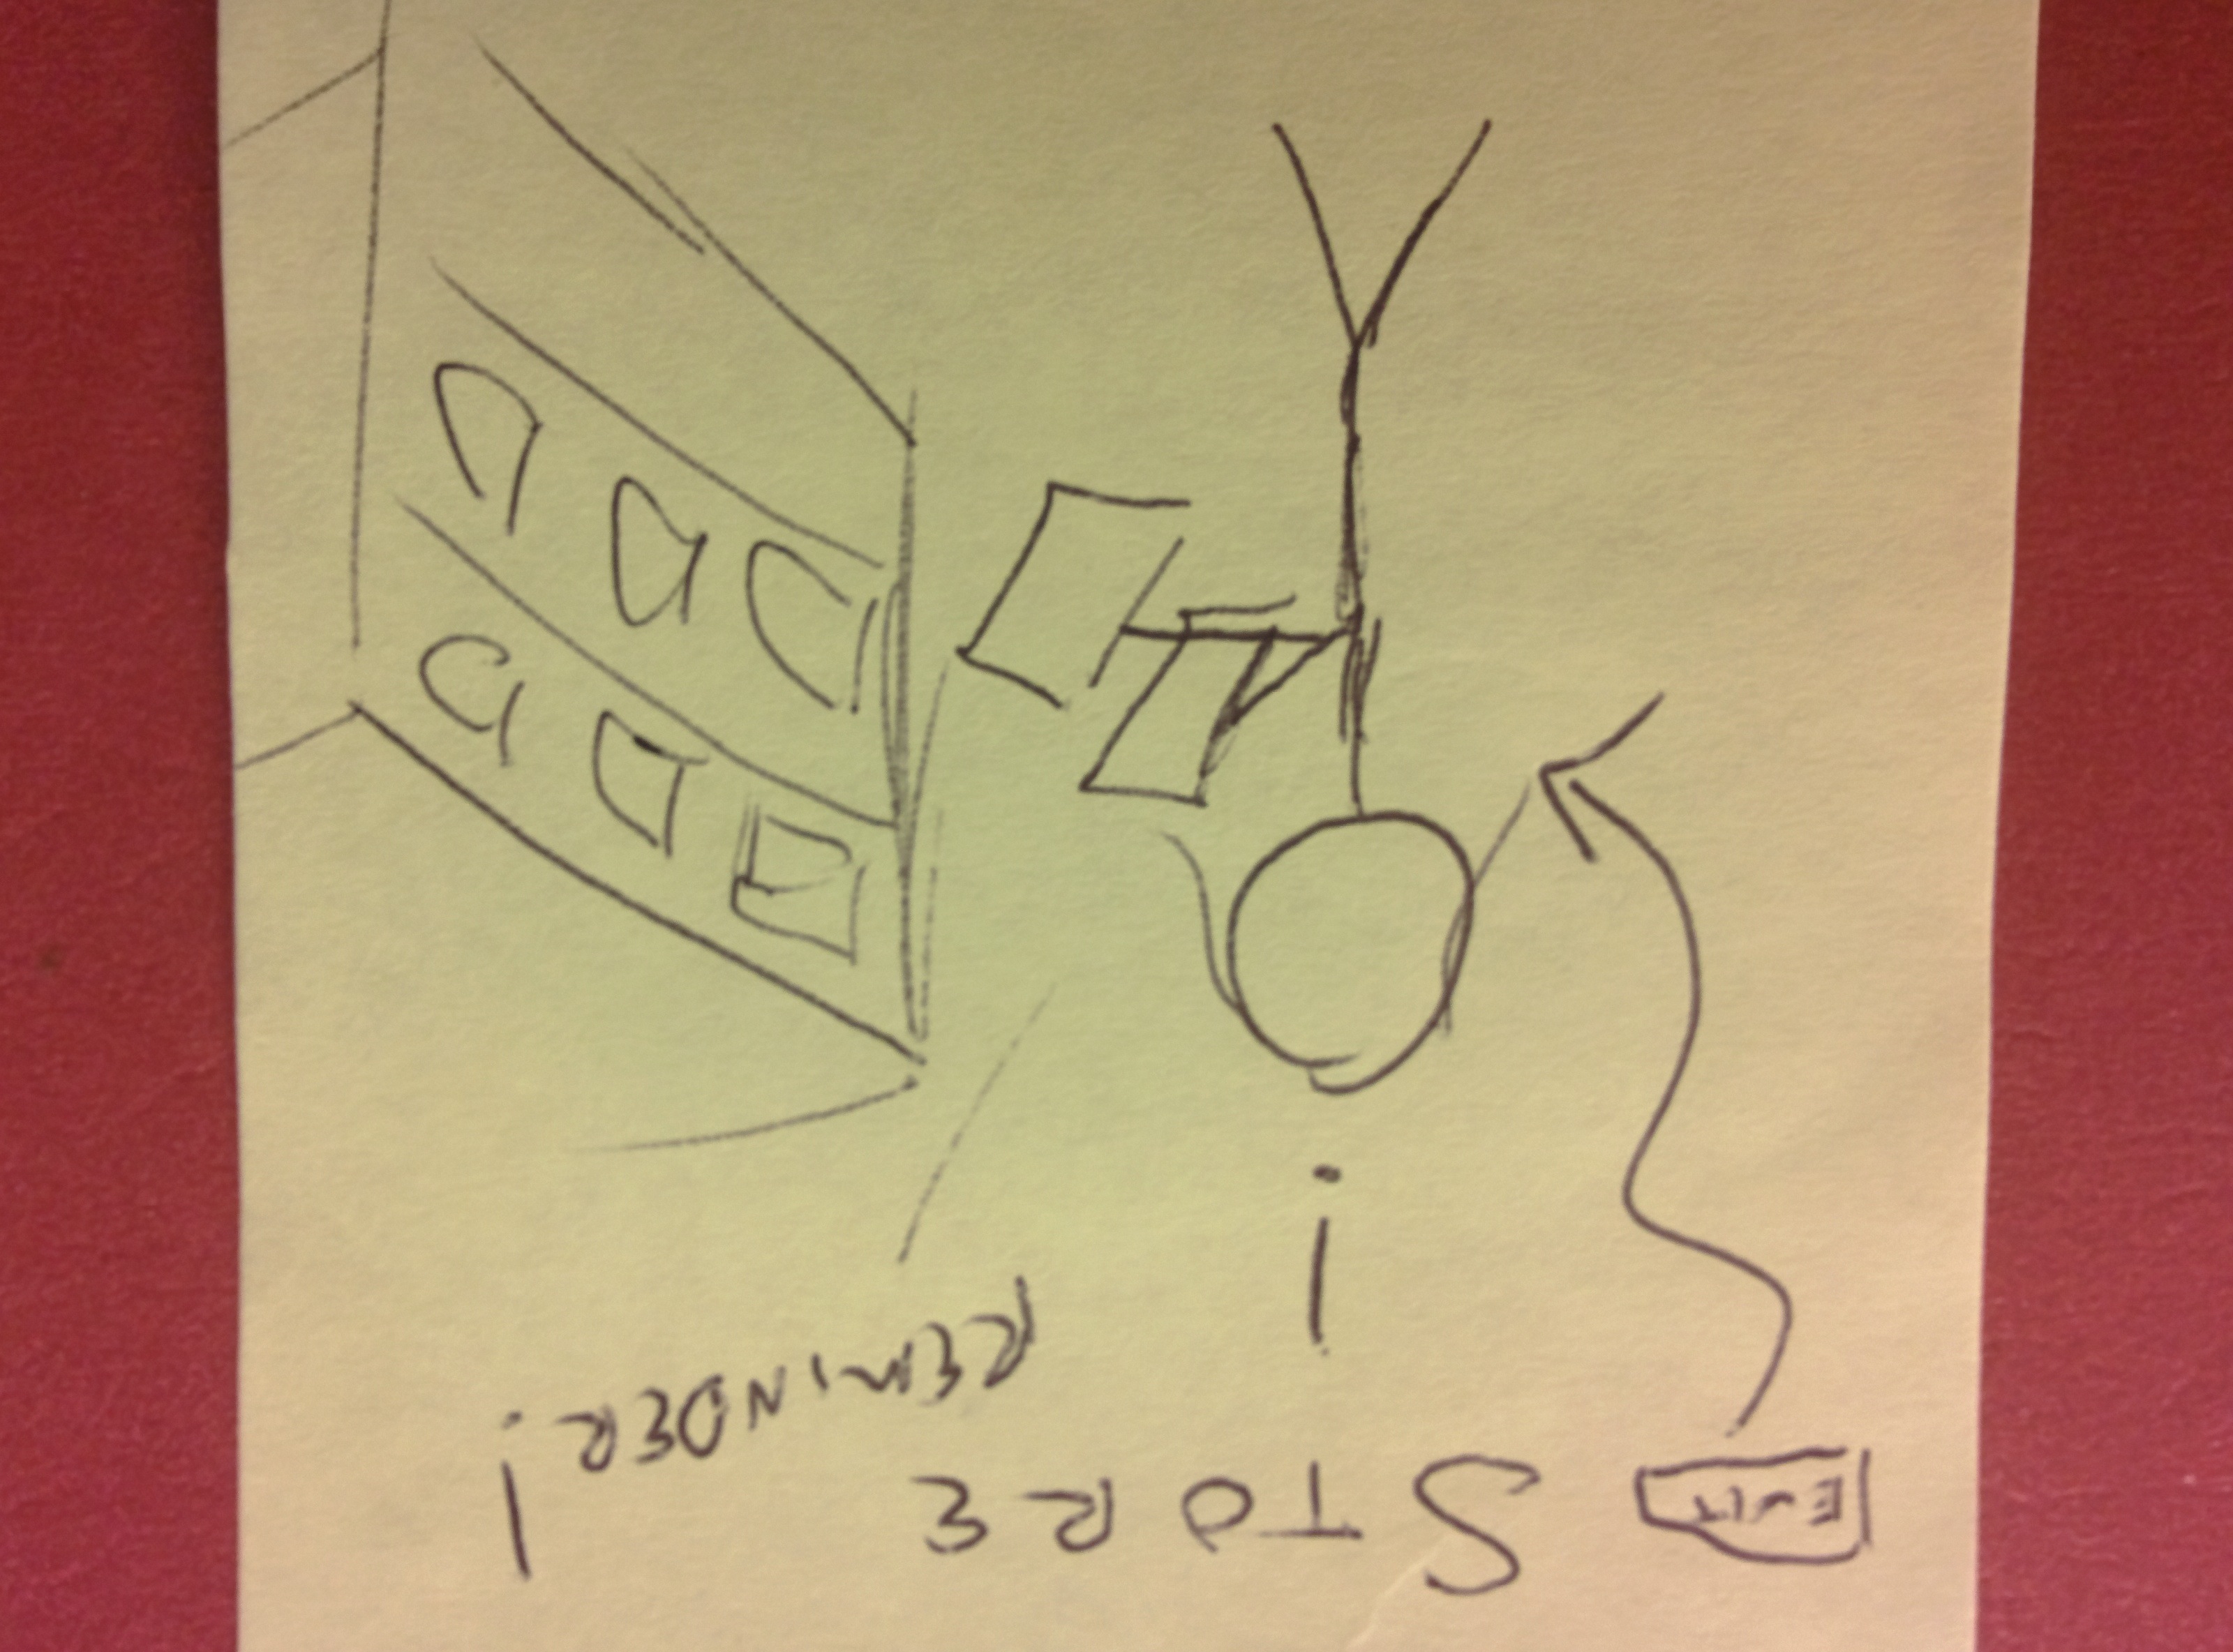 EXIT
STORE
REMINDER!
!